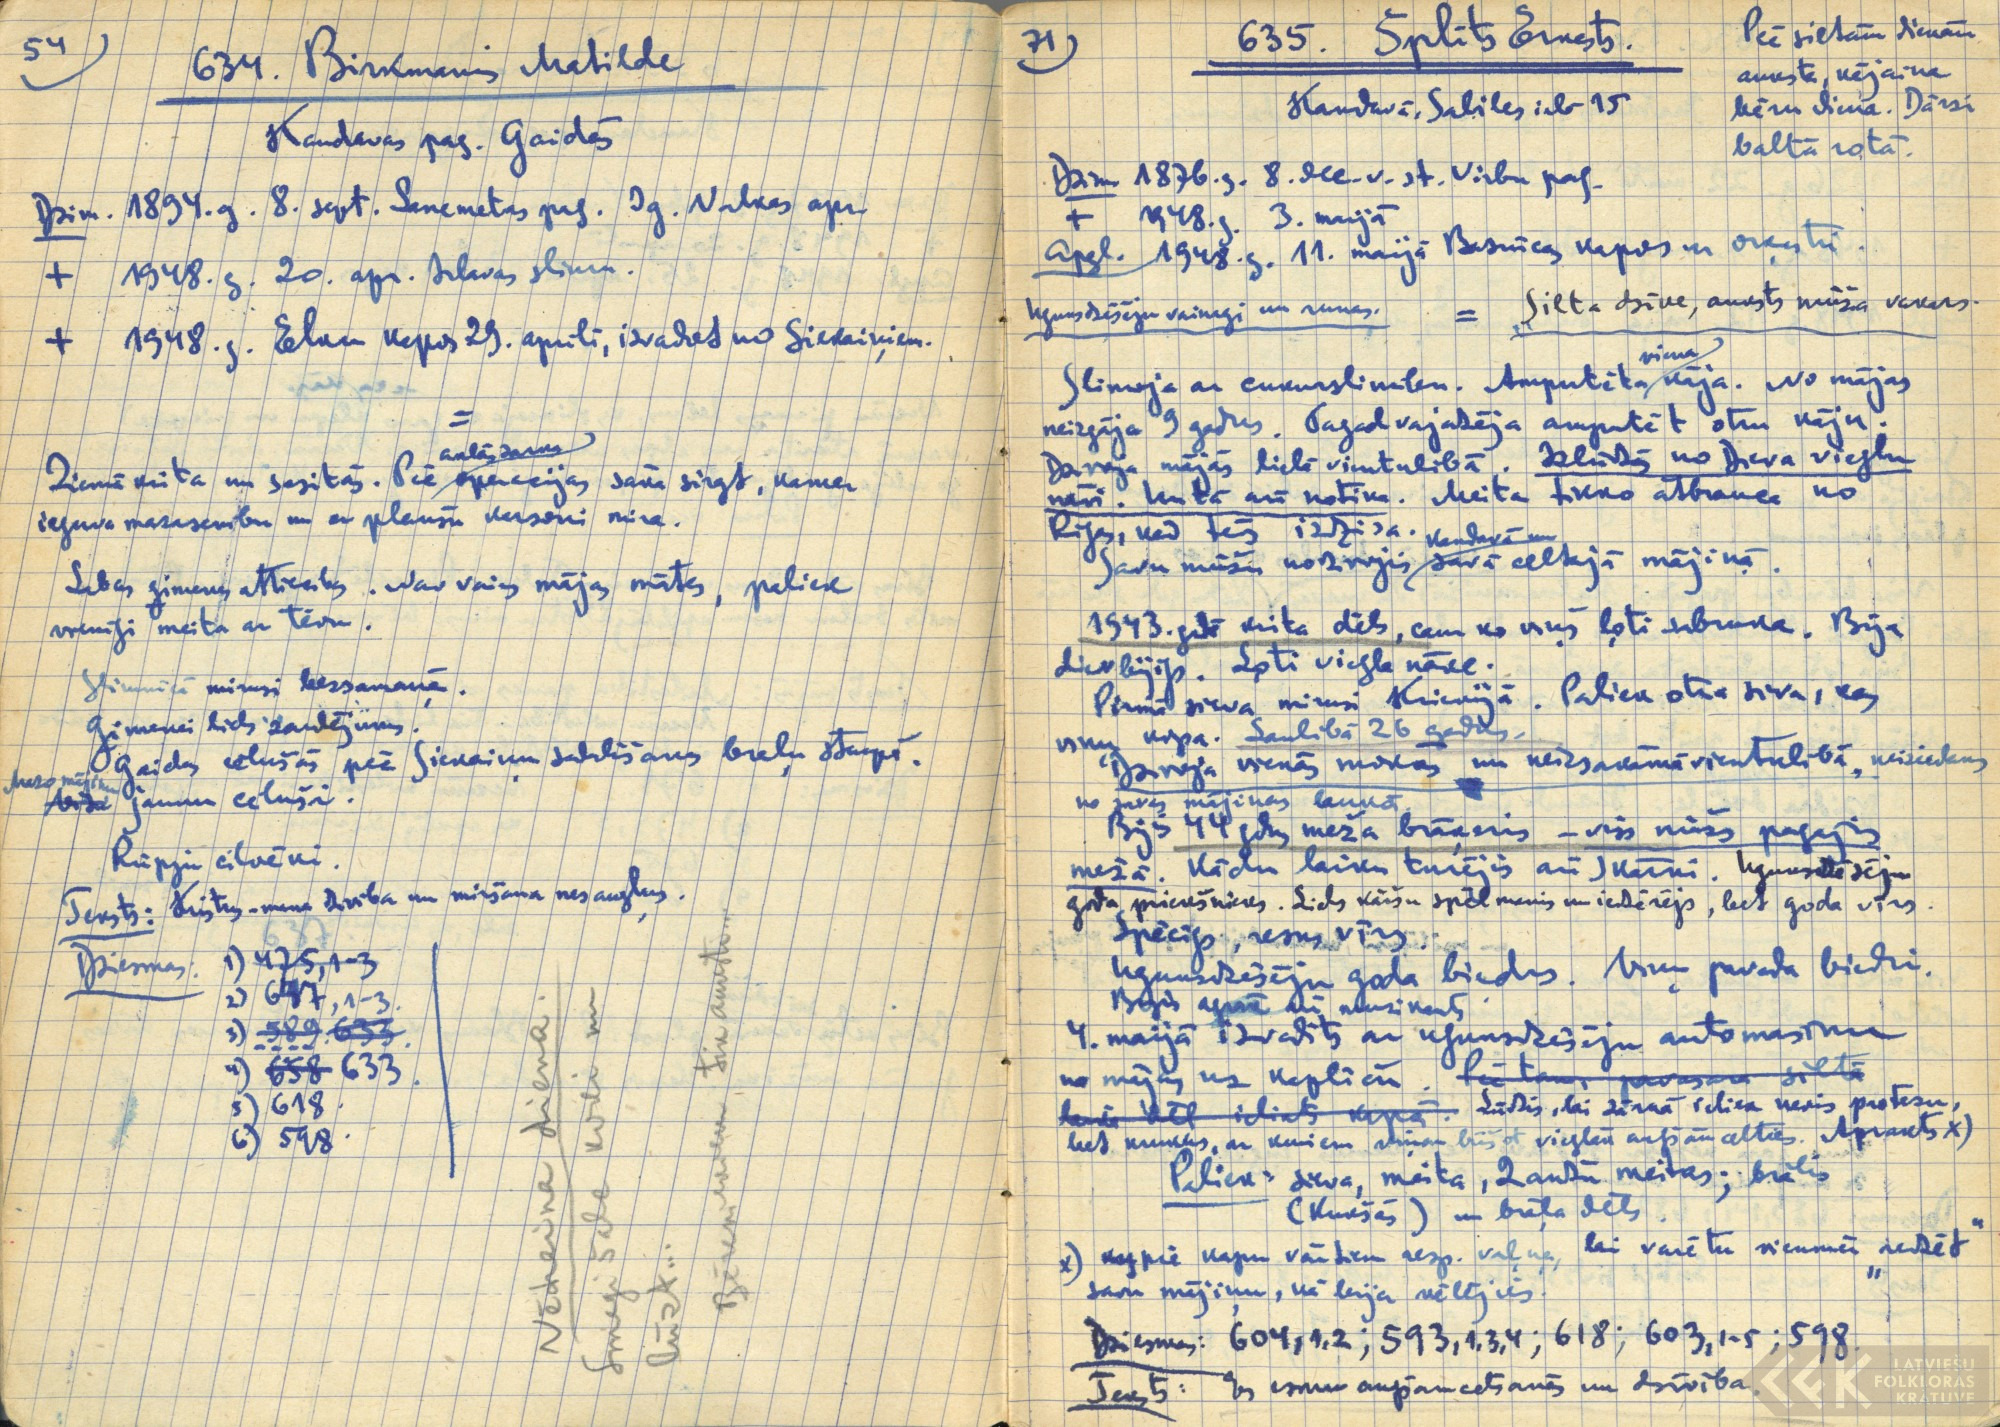 54
634. Birkmanis Matilde
Kandavas pag. Gaidās
Dzim. 1894.g. 8. sept. Lenemetas pag. Ig. Valkas apr.
+ 1948.g. 20. apr. Irlavas slimn.
+ 1948.g. Elku kapos 29. aprīlī, izvadot no Siekaiņiem.
=
Ziemā krita un sasitās. Pēc aukās zarna operācijas sāka sirgt, kamēr
ieguva mazasinību un ar plaušu karsoni mira.
Labas ģimenes attiecības. Nav vairs mājas mātes, paliek
vienīgi meita ar tēvu.
Slimnīcā mirusi bezsamaņā.
Ģimenei liels zaudējums.
Gaidas cēlušās pēc Siekaiņu sadalīšanas brāļu starpā.
Mazo mājiņu
jaunu cēluši.
Rūpīgi cilvēki.
Teksts: Kristus - mana dzīvība un miršana nes augļus.
Dziesmas: 1) 475, 1-3
2) 647, 1-3.
3) 589. 633.
4) 658 633.
5) 618.
6) 598.
Vējaina diena.
Smagi šalc koki un
lūzt...
Bēriniekiem tin auksti...
71
635. Splīts Ernests.
Kandavā, Sabiles ielā 15
Pēc siltām dienām
auksta, vējaina
bēru diena. Dārzi
baltā rotā.
Dzim. 1876.g. 8. dec. v. st. Virbu pag.
+ 1948.g. 3. maijā
Apgl. 1948.g. 11. maijā Baznīcas kapos ar orķestri.
Ugunsdzēsēju vainagi un runas. = Silta dzīve, auksts mūža vakars.
Slimoja ar cukurslimību. Amputēta viena kāja. No mājas
neizgāja 9 gadus. Tagad vajadzēja amputēt otru kāju.
Dzīvoja mājās lielā vientulībā. Izlūdzās no Dieva vieglu
nāvi. Un tā arī notika. Meita tikko atbrauca no
Rīgas, kad tēvs izdzisa.
Savu mūžu nodzīvojis Kandavā un savā celtajā mājiņā.
1943. gadā krita dēls, cem ko viņš ļoti sabruka. Bija
dievbijīgs. Ļoti viegla nāve.
Pirmā sieva mirusi Krievijā. Paliek otra sieva, kas
viņu kopa. Laulībā 26 gadus.
Dzīvoja vienās mokās un neizsakāmā vientulībā, neizejdams
no savas mājiņas laukā.
Bijis 44 gadus meža brāķeris - viss mūžs pagājis
mežā. Kādu laiku turējis arī skārni. Ugunsdzēsēju
goda priekšnieks. Liels kāršu spēlmanis un iedzērējs, bet goda vīrs.
Spēcīgs, resns vīrs.
Ugunsdzēsēju goda biedrs. Viņu pavada biedri.
Bijis agrāk arī muzikants
4. maijā izvadīts ar ugunsdzēsēju automašīnu
no mājas uz kapliču. Pēc tam, pavasara siltā
Lūdzis, lai zārkā ieliek nevis protezu,
bet kruķus, ar kuriem viņam būšot vieglāk augšām celties. Apraksts x)
Paliek: sieva, meita, 2 audžu meitas; brālis
(Kukšās) un brāļa dēls.
x) kapu vārtiem resp. vaļņa, lai varētu vienmēr "redzēt"
savu mājiņu, kā bija vēlējies.
Dziesmas: 604, 1,2; 593, 1,3,4; 618; 603, 1-5; 598
Teksts: Es esmu augšāmcelšanās un dzīvība.
LATVIEŠU
FOLKLORAS
KRĀTUVE